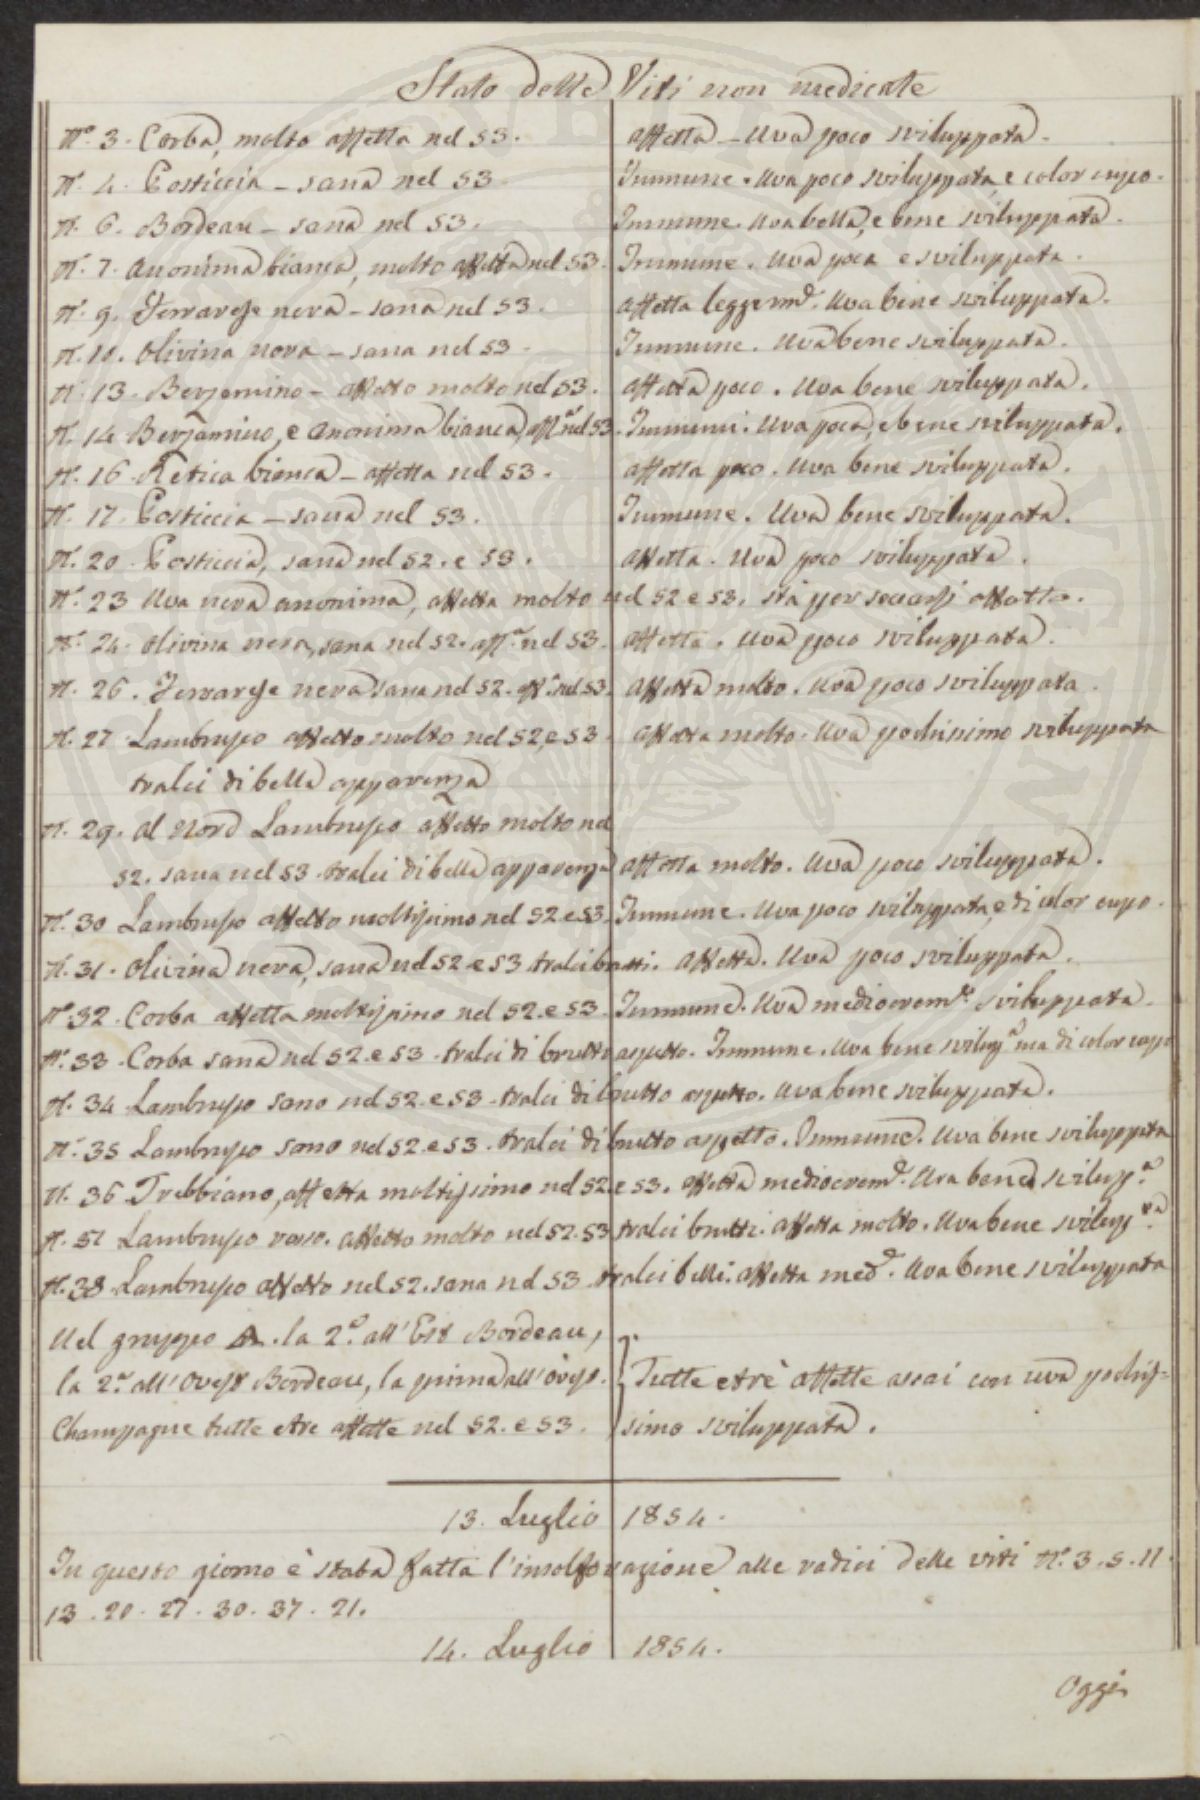 Stato delle Viti non medicate
N.° 3. Corba, molto affetta nel 53. affetta – Uva poco sviluppata.
N. 4. Posticcia – sana nel 53. Immune. Uva poco sviluppata, e color cupo.
N. 6. Bordeau – sana nel 53. Immune. Uva bella, e bene sviluppata.
N. 7. Anonima bianca, molto affetta nel 53. Immune. Uva poca e sviluppata.
N. 9. Ferrarese nera – sana nel 53. Affetta leggerm.e Uva bene sviluppata.
N. 10. Olivina nera – sana nel 53. Immune. Uva bene sviluppata.
N. 13. Berzomino – affetto molto nel 53. affetta poco. Uva bene sviluppata.
N. 14 Berzamino, e anonima bianca, aff.e nel 53. Immuni. Uva poca, e bene sviluppata.
N. 16. Retica bianca – affetta nel 53. affetta poco. Uva bene sviluppata.
N. 17. Posticcia – sana nel 53. Immune. Uva bene sviluppata.
N. 20. Posticcia, sana nel 52. e 53. affetta. Uva poco sviluppata.
N.° 23 Uva nera anonima, affetta molto nel 52 e 53. stà per seccarsi affatto.
N.° 24. Olivina nera, sana nel 52. aff.a nel 53. affetta. Uva poco sviluppata.
N. 26. Ferrarese nera sana nel 52. aff.a nel 53. affetta molto. Uva poco sviluppata.
N. 27 Lambrusco affetto molto nel 52, e 53 affetta molto. Uva pochissimo sviluppata
tralci di bella apparenza
N. 29. al Nord Lambrusco affetto molto nel
52. sana nel 53. tralci di bella apparenza affetta molto. Uva poco sviluppata.
N. 30 Lambrusco affetto moltissimo nel 52 e 53. Immune. Uva poco sviluppata, e di color cupo.
N. 31. Olivina nera, sana nel 52 e 53 tralci brutti. Affetta. Uva poco sviluppata.
N.° 32. Corba affetta moltissimo nel 52. e 53. Immune. Uva mediocrem.te sviluppata.
N.° 33. Corba sana nel 52. e 53. tralci di brutto aspetto. Immune. Uva bene svilup.a ma di color cupo
N. 34 Lambrusco sano nel 52. e 53 – tralci di brutto aspetto. Uva bene sviluppata.
N.° 35 Lambrusco sano nel 52. e 53. tralci di brutto aspetto. Immune. Uva bene sviluppata
N. 36 Trebbiano, affetta moltissimo nel 52. e 53. affetta mediocrem.e Uva bene svilup.a
N. 37 Lambrusco affetto molto nel 52. 53 tralci brutti. affetta molto. Uva bene svilup.ta
N. 38 Lambrusco affetto nel 52. sana nel 53 tralci belli. affetta med.e Uva bene sviluppata
Nel gruppo A. la 2.a all'Est Bordeau,
la 2.a all'Ovest Bordeau, la prima all'ovest. Tutte e trè affette assai con uva pochis=
Champagne tutte e tre affette nel 52. e 53. simo sviluppata.
13. Luglio 1854.
In questo giorno è stata fatta l'insolforazione alle radici delle viti N.° 3. 5. 11.
13. 20. 27. 30. 37. 21.
14. Luglio 1854.
Oggi